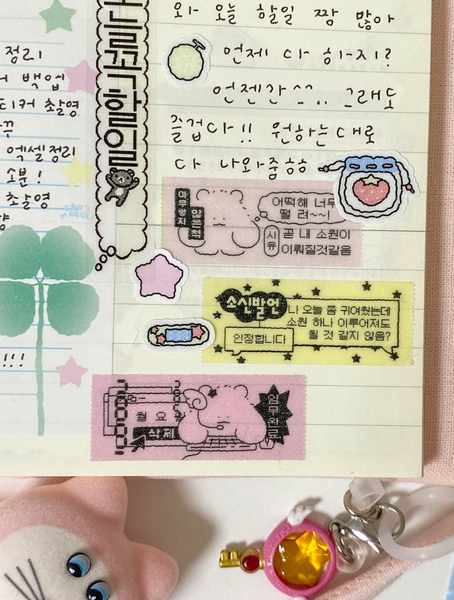 정리
백업
티커 촬영
꾸
엑셀정리
소분!
촬영
!!!
오늘꼬옥할일
와 오늘 할일 짱 많아
언제 다 하지?
언젠간^^.. 그래도
즐겁다!! 원하는대로
다 나와줌ㅎㅎ
아무렇지
않은척
어떡해 너무
떨려~~!
사유
곧 내 소원이
이뤄질것같음
소신발언
나 오늘 좀 귀여웠는데
소원 하나 이루어져도
될 것 같지 않음?
인정합니다
월요
삭제
업무완료